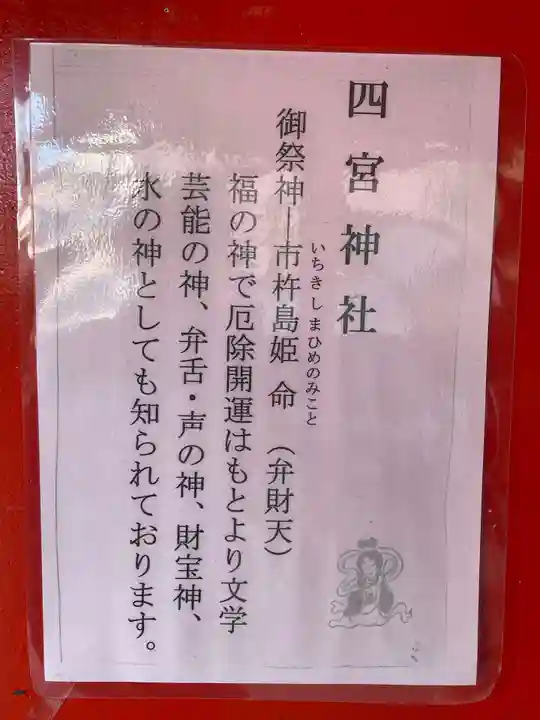 四宮神社
御祭神―市杵島姫 命 (弁財天)
いちきしまひめのみこと
福の神で厄除開運はもとより文学
芸能の神、弁舌・声の神、財宝神、
水の神としても知られております。